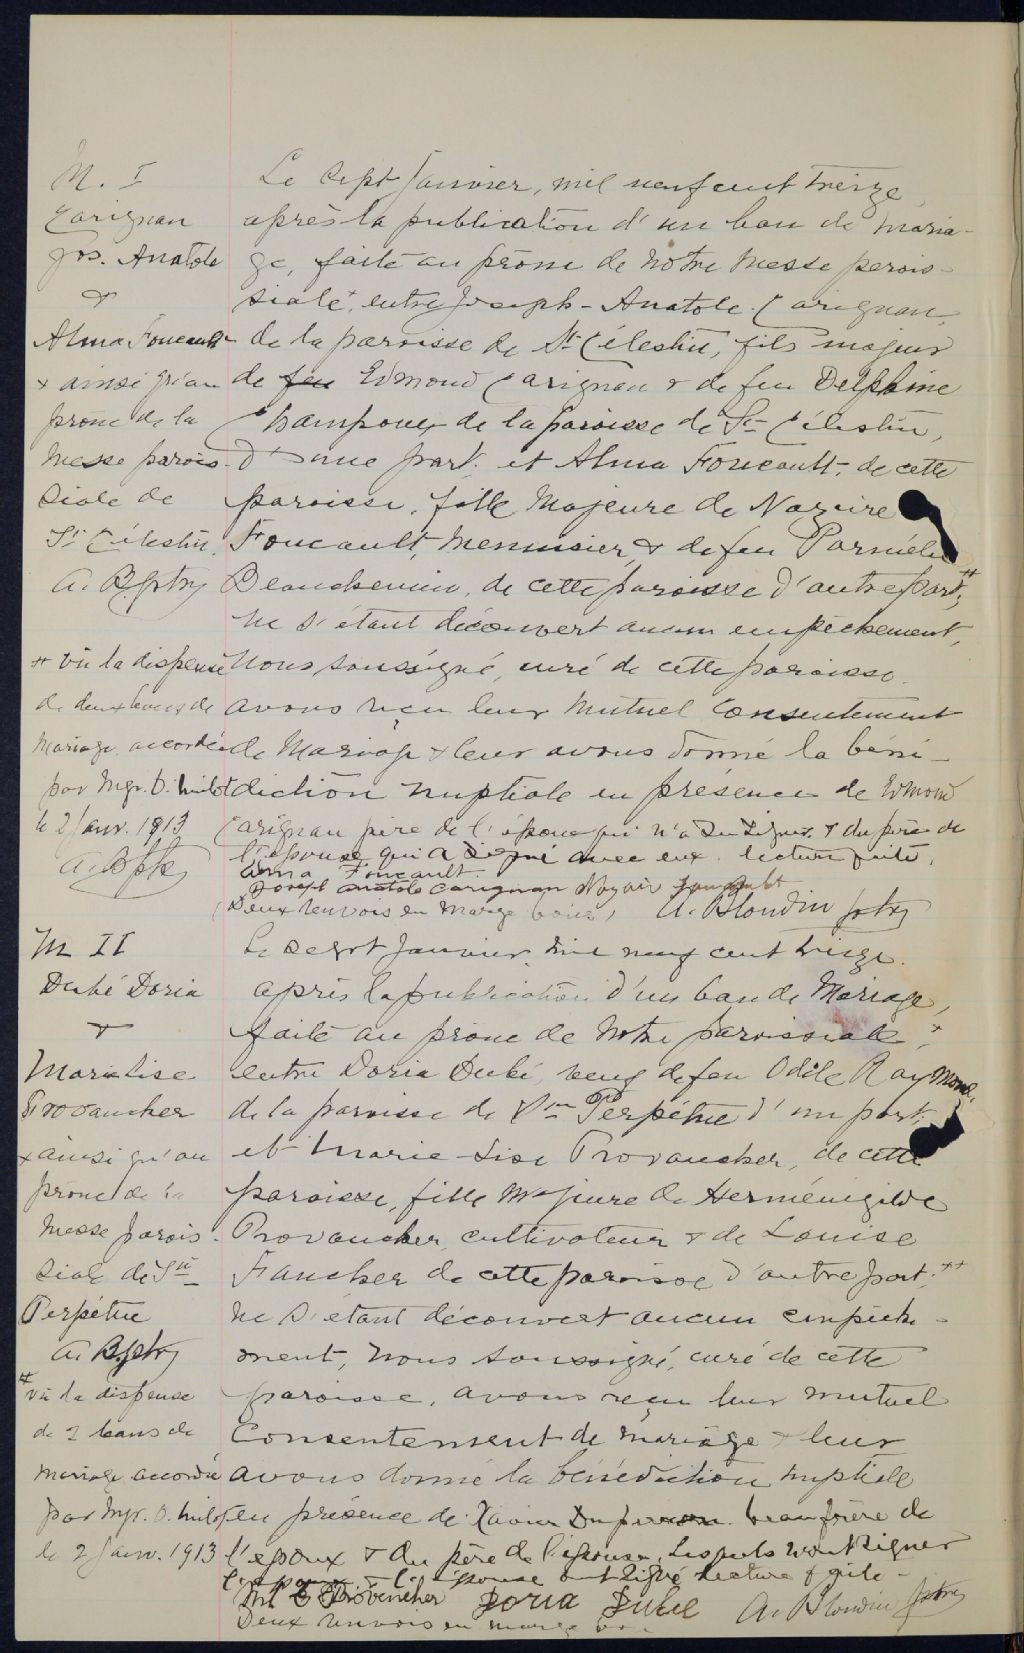 M. I
Carignan
Jos. Anatole
&
Alma Foucault
x ainsi qu'au
prône de la
Messe parois-
siale de
St Célestin.
A. B. ptre
** vu la dispense
de deux bans de
Mariage accordée
par Mgr. O. Milot
le 2 Janv. 1913
A. B. ptre
Le Sept Janvier, mil neuf cent treize
après la publication d'un ban de maria-
ge, faite au prône de Notre Messe parois-
siale x entre Joseph-Anatole Carignan,
de la paroisse de St Célestin, fils majeur
de feu Edmond Carignan & de feu Delphine
Champoux de la paroisse de St Célestin,
d'une part. et Alma Foucault, de cette
paroisse, fille Majeure de Nazaire
Foucault, Menuisier, & de feu
Beauchemin, de cette paroisse d'autre part; **
ne s'étant découvert aucun empêchement,
Nous soussigné, curé de cette paroisse
avons reçu leur Mutuel Consentement
de Mariage & leur avons donné la béné-
diction nuptiale en présence de Edmond
Carignan père de l'époux qui n'a su signer & du père de
l'épouse qui a signé avec eux. lecture faite.
Alma Foucault
Joseph Anatole Carignan Nazair Foucault
Deux renvois en marge bons, A. Blondin ptre
M II
Dubé Doria
&
Marie Lise
Provancher
x ainsi qu'au
prône de la
Messe parois-
siale de Ste
Perpétue
A. B. ptre
** vu la dispense
de 2 bans de
mariage accordée
par Mgr. O. Milot
le 2 Janv. 1913
Le Sept Janvier mil neuf cent treize
après la publication d'un ban de Mariage,
faite au prône de Notre paroissiale, x
entre Doria Dubé, veuf de feu Odile Raymond,
de la paroisse de Ste Perpétue d'un part;
et Marie Lise Provancher, de cette
paroisse, fille Majeure de Herménigilde
Provancher, cultivateur & de Louise
Faucher de cette paroisse d'autre part; **
ne s'étant découvert aucun empêche-
ment, Nous soussigné, curé de cette
paroisse, avons reçu leur mutuel
Consentement de mariage & leur
avons donné la bénédiction nuptiale
en présence de Xavier beaufrère de
l'époux & du père de l'épouse, lesquels n'ont signer
l'époux & l'épouse ont signé Lecture faite-
Provencher Doria Dubé A. Blondin ptre
Deux renvois en marge bons